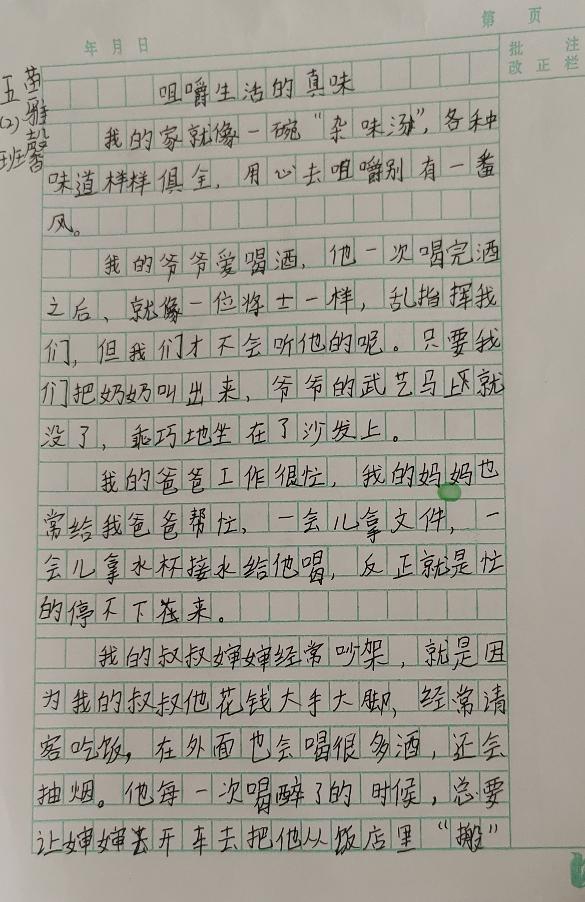 第 页
年 月 日
批 注
改 正 栏
五(2)班
雅馨
咀嚼生活的真味
我的家就像一碗“杂味汤”，各种
味道样样俱全，用心去咀嚼别有一番
风。
我的爷爷爱喝酒，他一次喝完酒
之后，就像一位将士一样，乱指挥我
们，但我们才不会听他的呢。只要我
们把奶奶叫出来，爷爷的武艺马上就
没了，乖巧地坐在了沙发上。
我的爸爸工作很忙，我的妈妈也
常给我爸爸帮忙，一会儿拿文件，一
会儿拿水杯接水给他喝，反正就是忙
的停不下来。
我的叔叔婶婶经常吵架，就是因
为我的叔叔他花钱大手大脚，经常请
客吃饭，在外面也会喝很多酒，还会
抽烟。他每一次喝醉了的时候，总要
让婶婶开车去把他从饭店里“搬”